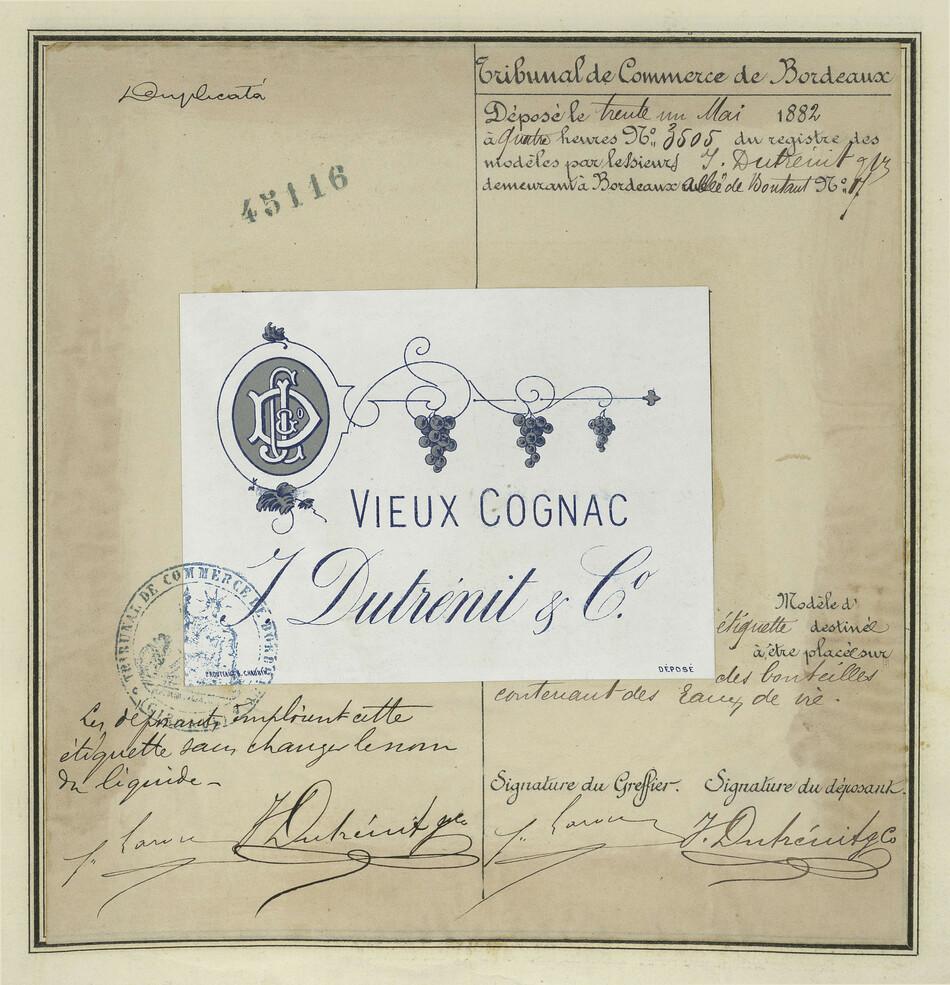 Duplicata
45116
Tribunal de Commerce de Bordeaux
Déposé le trente un Mai 1882
à quatre heures Nº 3505 du registre des
modèles par les sieurs J. Dutrénit & Co
demeurant à Bordeaux allée de Boutaut Nº
DC&Co
VIEUX COGNAC
J Dutrénit & Cº
DÉPOSÉ
TRIBUNAL DE COMMERCE DE BORDEAUX
Modèle d'
étiquette destinée
à être placée sur
des bouteilles
contenant des Eaux de vie.
Les déposants emploient cette
étiquette sans changer le nom
du liquide
J. Dutrénit & Co
Signature du Greffier. Signature du déposant.
J. Dutrénit & Co